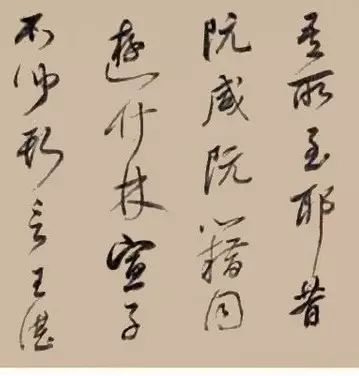 吾所至耶昔
阮咸阮籍同
遊竹林宣子
不聞斯言王湛